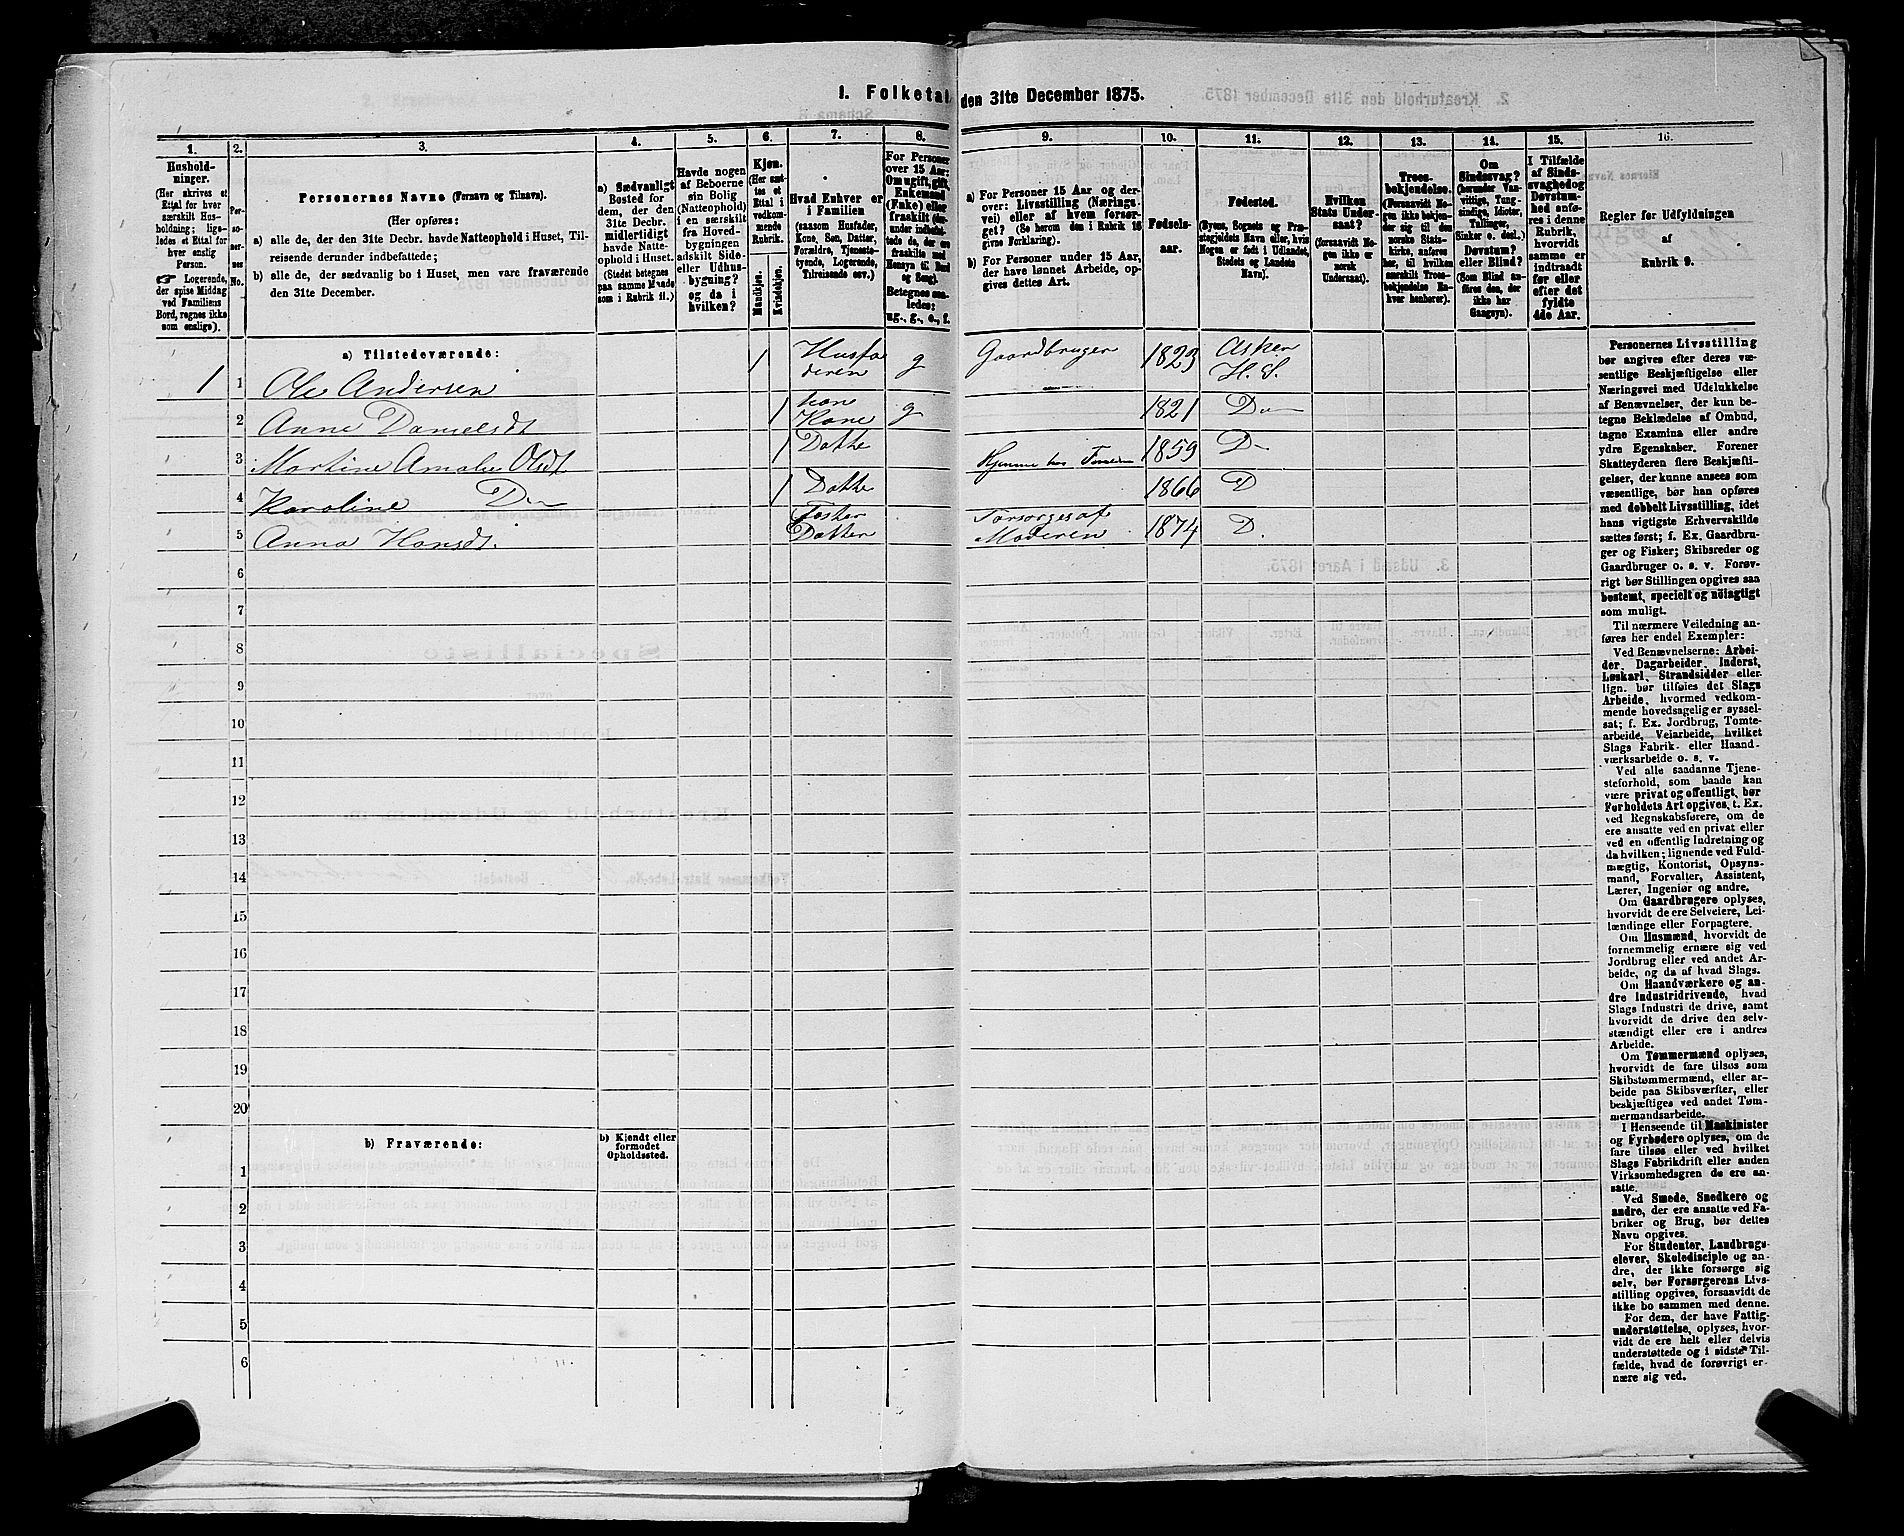 1. Folketal den 31te December 1875.
1.
2.
3.
4.
5.
6.
7.
8.
9.
10.
11.
12.
13.
14.
15.
16.
Hushold-
ninger.
(Her skrives et
Ettal for hver
særskilt Hus-
holdning; lige-
ledes et Ettal for
hver enslig
Person.
Logerende,
der spise Middag
ved Familiens
Bord, regnes ikke
som enslige).
Per-
so-
ner-
nes
No.
Personernes Navne (Fornavn og Tilnavn).
(Her opføres:
a) alle de, der den 31te Decbr. havde Natteophold i Huset, Til-
reisende derunder indbefattede;
b) alle de, der sædvanlig bo i Huset, men vare fraværende
den 31te December.
a) Sædvanligt
Bosted for
dem, der den
31te Decbr.
midlertidigt
havde Natte-
ophold i Huset.
(Stedet betegnes
paa samme Maade
som i Rubrik 11.)
Havde nogen
af Beboerne
sin Bolig
(Natteophold)
i en særskilt
fra Hoved-
bygningen
adskilt Side-
eller Udhus-
bygning?
og da i
hvilken?
Kjøn.
(Her sæt-
tes et
Ettal i
vedkom-
mende
Rubrik.
Mandkjøn.
Kvindekjøn.
Hvad Enhver er
i Familien
(saasom Husfader,
Kone, Søn, Datter,
Forældre, Tjeneste-
tyende, Logerende,
Tilreisende osv.)
For Personer
over 15 Aar:
Om ugift, gift,
Enkemand
(Enke) eller
fraskilt (der-
under indbefat-
tede de, der ere
fraskilte med
Hensyn til Bord
og Seng).
Betegnes saa-
ledes:
ug., g., e., f.
a) For Personer 15 Aar og der-
over: Livsstilling (Nærings-
vei) eller af hvem forsør-
get? (Se herom den i Rubrik 16
givne Forklaring).
b) For Personer under 15 Aar,
der have lønnet Arbeide, op-
gives dettes Art.
Fødsels-
aar.
Fødested.
(Byens, Sognets og Præ-
stegjeldets Navn eller, hvis
Nogen er født i Udlandet,
Stedets og Landets
Navn).
Hvilken
Stats Under-
saat?
(forsaavidt No-
gen ikke er
norsk
Undersaat).
Troes-
bekjendelse.
(Forsaavidt No-
gen ikke bekjen-
der sig til den
norske Stats-
kirke, anføres
her, til hvilken
særskilt Troes-
bekjendelse En-
hver henhører).
Om
Sindssvag?
(herunder Van-
vittige, Tung-
sindige, Idioter,
Tullinger,
Sinker o. desl.)
Døvstum?
eller Blind?
(Som Blind an-
føres den, der
ikke har
Gangsyn).
I Tilfælde
af Sinds-
svaghed og
Døvstum-
hed anfø-
res i denne
Rubrik,
hvorvidt
samme er
indtraadt
før eller
efter det
fyldte
4de Aar.
Regler for Udfyldningen
af
Rubrik 9.
a) Tilstedeværende:
1 1 Ole Andersen 1 Husfa
deren g Gaardbruger 1823 Asker
H. S.
2 Anne Danielsdt 1 kone
Kone g 1821 Do
3 Martine Amalie Olsdt 1 Datter Hjemme hos Forældre 1859 Do
4 Karoline Do 1 Datter 1866 D
5 Anna Hansdt. Foster
Datter Forsørges af
Moderen 1874 D.
6
7
8
9
10
11
12
13
14
15
16
17
18
19
20
b) Fraværende:
b) Kjendt eller
formodet
Opholdssted.
1
2
3
4
5
6
Personernes Livsstilling
bør angives efter deres væ-
sentlige Beskjæftigelse eller
Næringsvei med Udelukkelse
af Benævnelser, der kun be-
tegne Beklædelse af Ombud,
tagne Examina eller andre
ydre Egenskaber. Forener
Skatteyderen flere Beskjæfti-
gelser, der kunne ansees som
væsentlige, bør han opføres
med dobbelt Livsstilling, idet
hans vigtigste Erhvervskilde
sættes først; f. Ex. Gaardbru-
ger og Fisker; Skibsreder og
Gaardbruger o. s. v. Forøv-
rigt bør Stillingen opgives saa
bestemt, specielt og nøiagtigt
som muligt.
Til nærmere Veiledning an-
føres her endel Exempler:
Ved Benævnelserne: Arbei-
der, Dagarbeider, Inderst,
Løskarl, Strandsidder eller
lign. bør tilføies det Slags
Arbeide, hvormed vedkom-
mende hovedsagelig er syssel-
sat; f. Ex. Jordbrug, Tomte-
arbeide, Veiarbeide, hvilket
Slags Fabrik- eller Haand-
værksarbeide o. s. v.
Ved alle saadanne Tjene-
steforhold, som baade kan
være privat og offentligt, bør
Forholdets Art opgives, t. Ex.
ved Regnskabsførere, om de
ere ansatte ved en privat eller
ved en offentlig Indretning og
da hvilken; lignende ved Fuld-
mægtig, Kontorist, Opsyns-
mand, Forvalter, Assistent,
Lærer, Ingeniør og andre.
Om Gaardbrugere oplyses,
hvorvidt de ere Selveiere, Lei-
lændinge eller Forpagtere.
Om Husmænd, hvorvidt de
fornemmelig ernære sig ved
Jordbrug eller ved andet Ar-
beide, og da af hvad Slags.
Om Haandværkere og an-
dre Industridrivende, hvad
Slags Industri de drive, samt
hvorvidt de drive den selv-
stændigt eller ere i andres
Arbeide.
Om Tømmermænd oplyses,
hvorvidt de fare tilsøs som
Skibstømmermænd, eller ar-
beide paa Skibsværfter, eller
beskjæftiges ved andet Tøm-
mermandsarbeide.
I Henseende til Maskinister
og Fyrbødere oplyses, om de
fare tilsøs eller ved hvilket
Slags Fabrikdrift eller anden
Virksomhedsgren de ere an-
satte.
Ved Smede, Snedkere og
andre, der ere ansatte ved Fa-
briker og Brug, bør dettes
Navn opgives.
For Studenter, Landbrugs-
elever, Skoledisciple og an-
dre, der ikke forsørge sig
selv, bør Forsørgerens Livs-
stilling opgives, forsaavidt de
ikke bo sammen med denne.
For dem, der have Fattig-
understøttelse, oplyses, hvor-
vidt de ere helt eller delvis
understøttede og i sidste Til-
fælde, hvad de forøvrigt er-
nære sig ved.